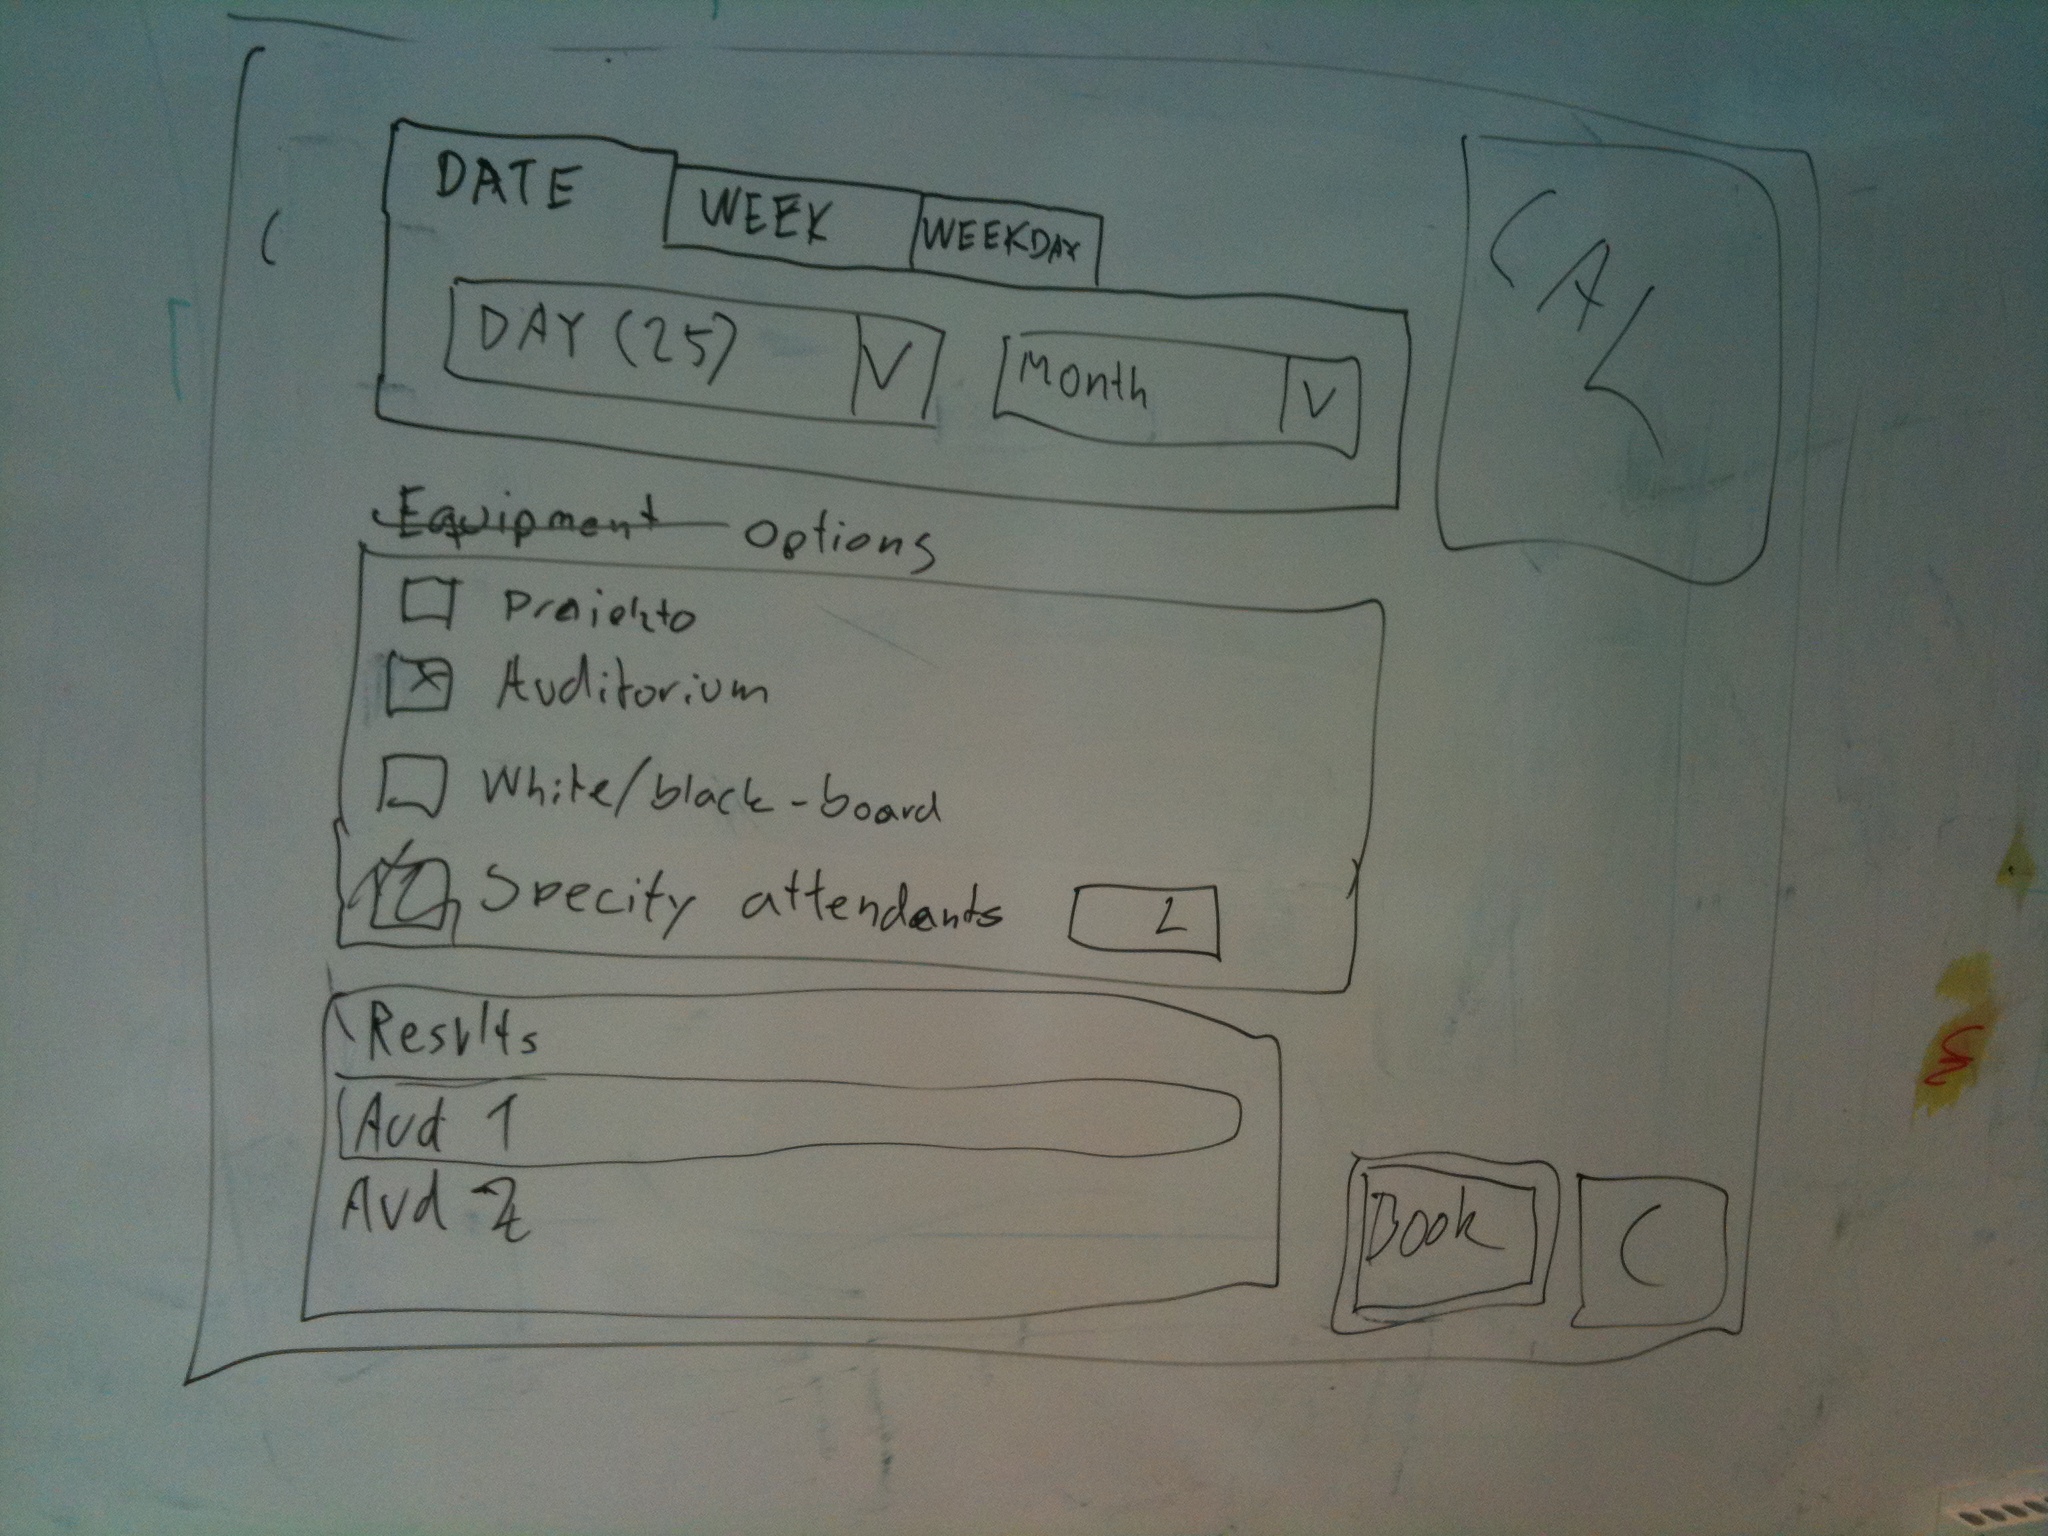 DATE
WEEK
WEEKDAY
DAY (25) V
Month V
CAL
Equipment Options
Projekto
Auditorium
White/black-board
Specify attendants 2
Results
Aud 1
Aud 2
Book
C